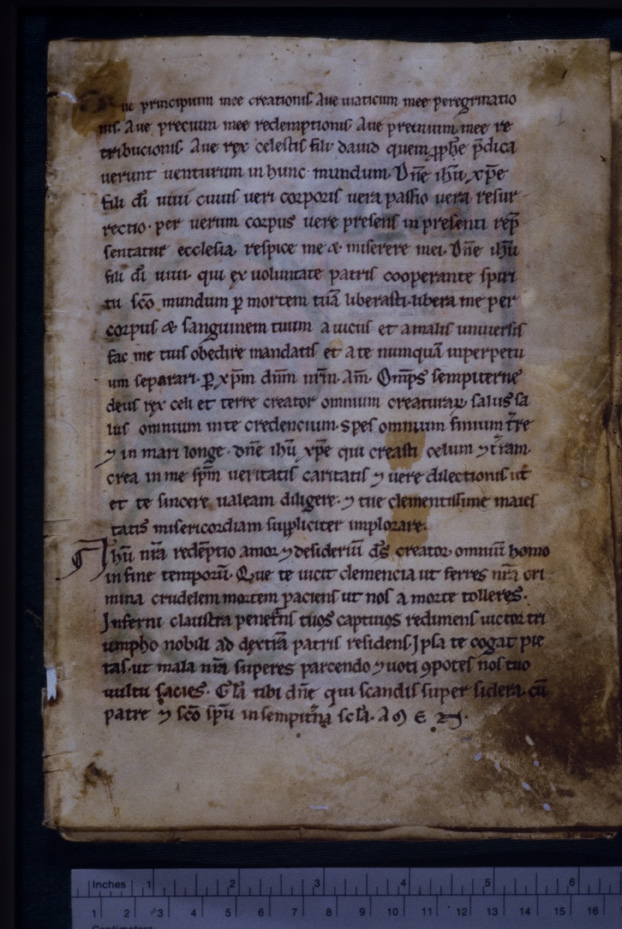 ue principium mee creationis. Aue uiaticum mee peregrinatio
nis. Aue precium mee redemptionis Aue premium mee re
tribucionis. Aue rex celestis fili dauid quem ꝓphe p̄dica
uerunt uenturum in hunc mundum. Dn̄e ihū xp̄e
fili dī uiui cuius ueri corporis uera passio uera resur-
rectio. per uerum corpus uere presens in presenti rep̄
sentatur ecclesia. respice me & miserere mei. Dn̄e ihū
fili dī uiui. qui ex uoluntate patris cooperante spiri
tu sc̄o mundum ꝑ mortem tuā liberasti. libera me per
corpus & sanguinem tuum a uiciis et a malis uniuersis
fac me tuis obedire mandatis et a te numquā inperpetu
um separari. ꝑ xp̄m dn̄m nr̄m. Am̄. Om̄ps sempiterne
deus rex celi et terre creator omnium creaturaꝝ. salus sa
lus omnium in te credencium. spes omnium finium tr̄re
⁊ in mari longe. dn̄e ihū xp̄e qui creasti celum ⁊ t̄ram.
crea in me sp̄m ueritatis caritatis ⁊ uere dilectionis ut
et te sincere ualeam diligere. ⁊ tue clementissime maies
tatis misericordiam suppliciter implorare.
Ihū nr̄a redēptio amor ⁊ desideriū dꝰ creator omniū homo
in fine temporū. Que te uicit clemencia ut ferres nr̄a cri
mina crudelem mortem paciens ut nos a morte tolleres.
Inferni claustra penetrās tuos captiuos redimens uictor tri
umpho nobili ad dextrā patris residens. Ipsa te cogat pie
tas. ut mala nr̄a superes parcendo ⁊ uoti ꝯpotes nos tuo
uultu sacies. Gl̄a tibi dn̄e qui scandis super sidera. cū
patre ⁊ sc̄o sp̄u in sempit̄na scl̄a. A M E N.
Inches 1 2 3 4 5 6
1 2 3 4 5 6 7 8 9 10 11 12 13 14 15 16